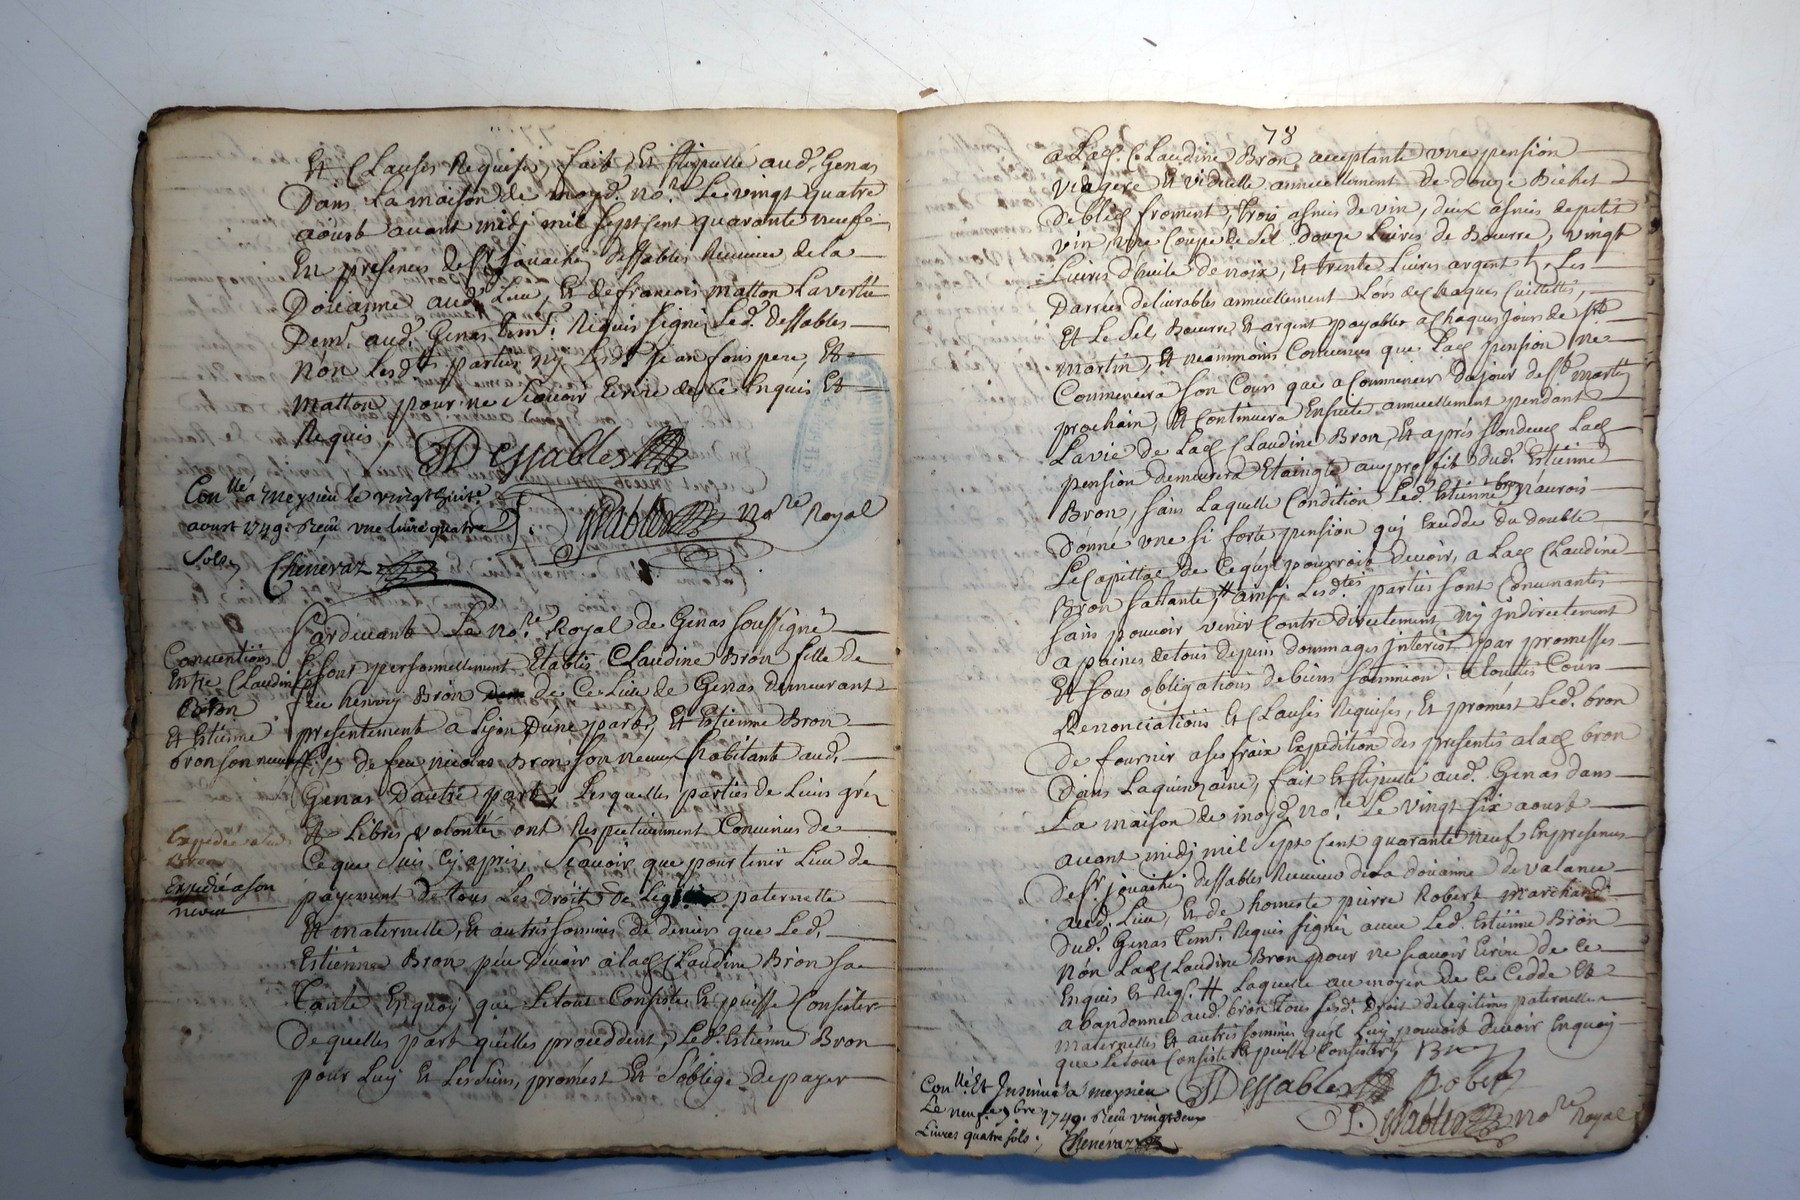 Et Clauses Requises, fait Et stipullé aud. Genas
Dans La maison de moyd. no.re Le vingt quatre
aoust avant midj mil sept cent quarante neuf
En presences de Sr Jouachin Dessables Receveur de la
Doüanne aud. Lieu, Et de francois matton Lavertu
Dem.t aud. Genas tem.t Requis signé Led. Dessables
Nön Lesd. parties ny Led. Jean fons pere, Et
matton pour ne Scavoir Ecrire de Ce Enquis Et
Requis
Dessables
Con.llé a meysieu le vingt huit.e
aoust 1749. Reçu une livre quatre
sols,
Chenevaz
Dessables no.re Royal
Pardevant Le no.re Royal de Genas soussigné
Conventiöns
Entre Claudine
Bron
Et Estienne
bron son neveu
se sont personnellement Etablis Claudine Bron fille de
feu henry Brön de Ce Lieu de Genas demeurant
presentement a Lÿon Dune part, Et Estienne Bron
fils de feu nicolas Bron son neveu habitant aud.
Genas Dautre part, Lesquelles parties de Leurs grés
Et Libres volontés ont Respectivement Convenus de
Ce que Suis Cy apres, Scavoir que pour tenir Lieu de
Expedié a lad.
Bron
Expedié a son
neveu
payement de tous Les Droits de Legitime paternelle
Et maternelle, Et autres sommes de deniers que Led.
Estienne Bron peu Devoir a lad. Claudine Bron sa
Tante En quoy que Letout Consiste Et puisse Consister
De quelles part quelles proceddent, Led. Estienne Bron
pour Luy Et Les siens, promest Et S'oblige de payer
78
a Lad. Claudine Bron acceptante une pension
viagere Et viduelle annuellement de douze Bichet
De bled froment, trois asnées de vin, deux asnées de petit
vin, une Coupe de Sel Douze Livres de Beurre, vingt
Livres d'huile de noix, Et trente Livres argent, Les
Darrées delivrables annuellement Lörs des chaques Cuillettes,
Et Le Sel, Beurre Et argent payables a chaques Jours de St
martin, Et neanmoins Convenus que Lad. pension ne
Commencera son Cours que a Commencer Du jour de St martin
prochain, Et Continuera Ensuite annuellement pendant
La vie de Lad. Claudine Bron, Et après son decéd Lad.
pension demeurera Etaingte au proffit dud. Estienne
Bron, sans Laquelle Condition Led. Estienne bron n'aurois
Donné une si forte pension quj Exedde du double
Le Capittal de Ce qu'il pourroit devoir, a Lad. Claudine
Bron sa tante, # ainsj Lesd.tes parties sont Convenantes
sans pouvoir venir Contre directement ny jndirectement
a paines de tous depens dommages jnterest par promesses
Et sous obligations de biens soumission a toutes Cours
Renonciatiöns Et Clauses Requises, Et promést Led. bron
De fournir a ses fraix Expedition des presentes a lad. bron
Dans La quinzaine, fait Et stipullé aud. Genas dans
La maison de moyd. no.re Le vingt six aoust
avant midj mil sept cent quarante neuf En presences
de Sr jouachin dessables Receveur de La doüanne de valance
aud. Lieu, Et de honneste pierre Robert marchand
Dud. Genas tem.t Requis signés avec Led. Estienne Brön
Nön Lad. Claudine Bron pour ne scavoir Ecrire de Ce
Enquis Et Req. # Laquelle au moyen de Ce Cedde Et
abandonne aud. bron tous Lesd. Droit de legitimes paternelle
maternelles Et autres sommes qu'il Luy pouvoit devoir En quoy
que Le tout Consiste Et puisse Consister
Bron
Dessables Robert
Con.llé Et Insinué a meysieu
Le neuf.e 7bre 1749. Reçu vingt deux
Livres quatre sols,
Chenevaz
Dessables no.re Royal